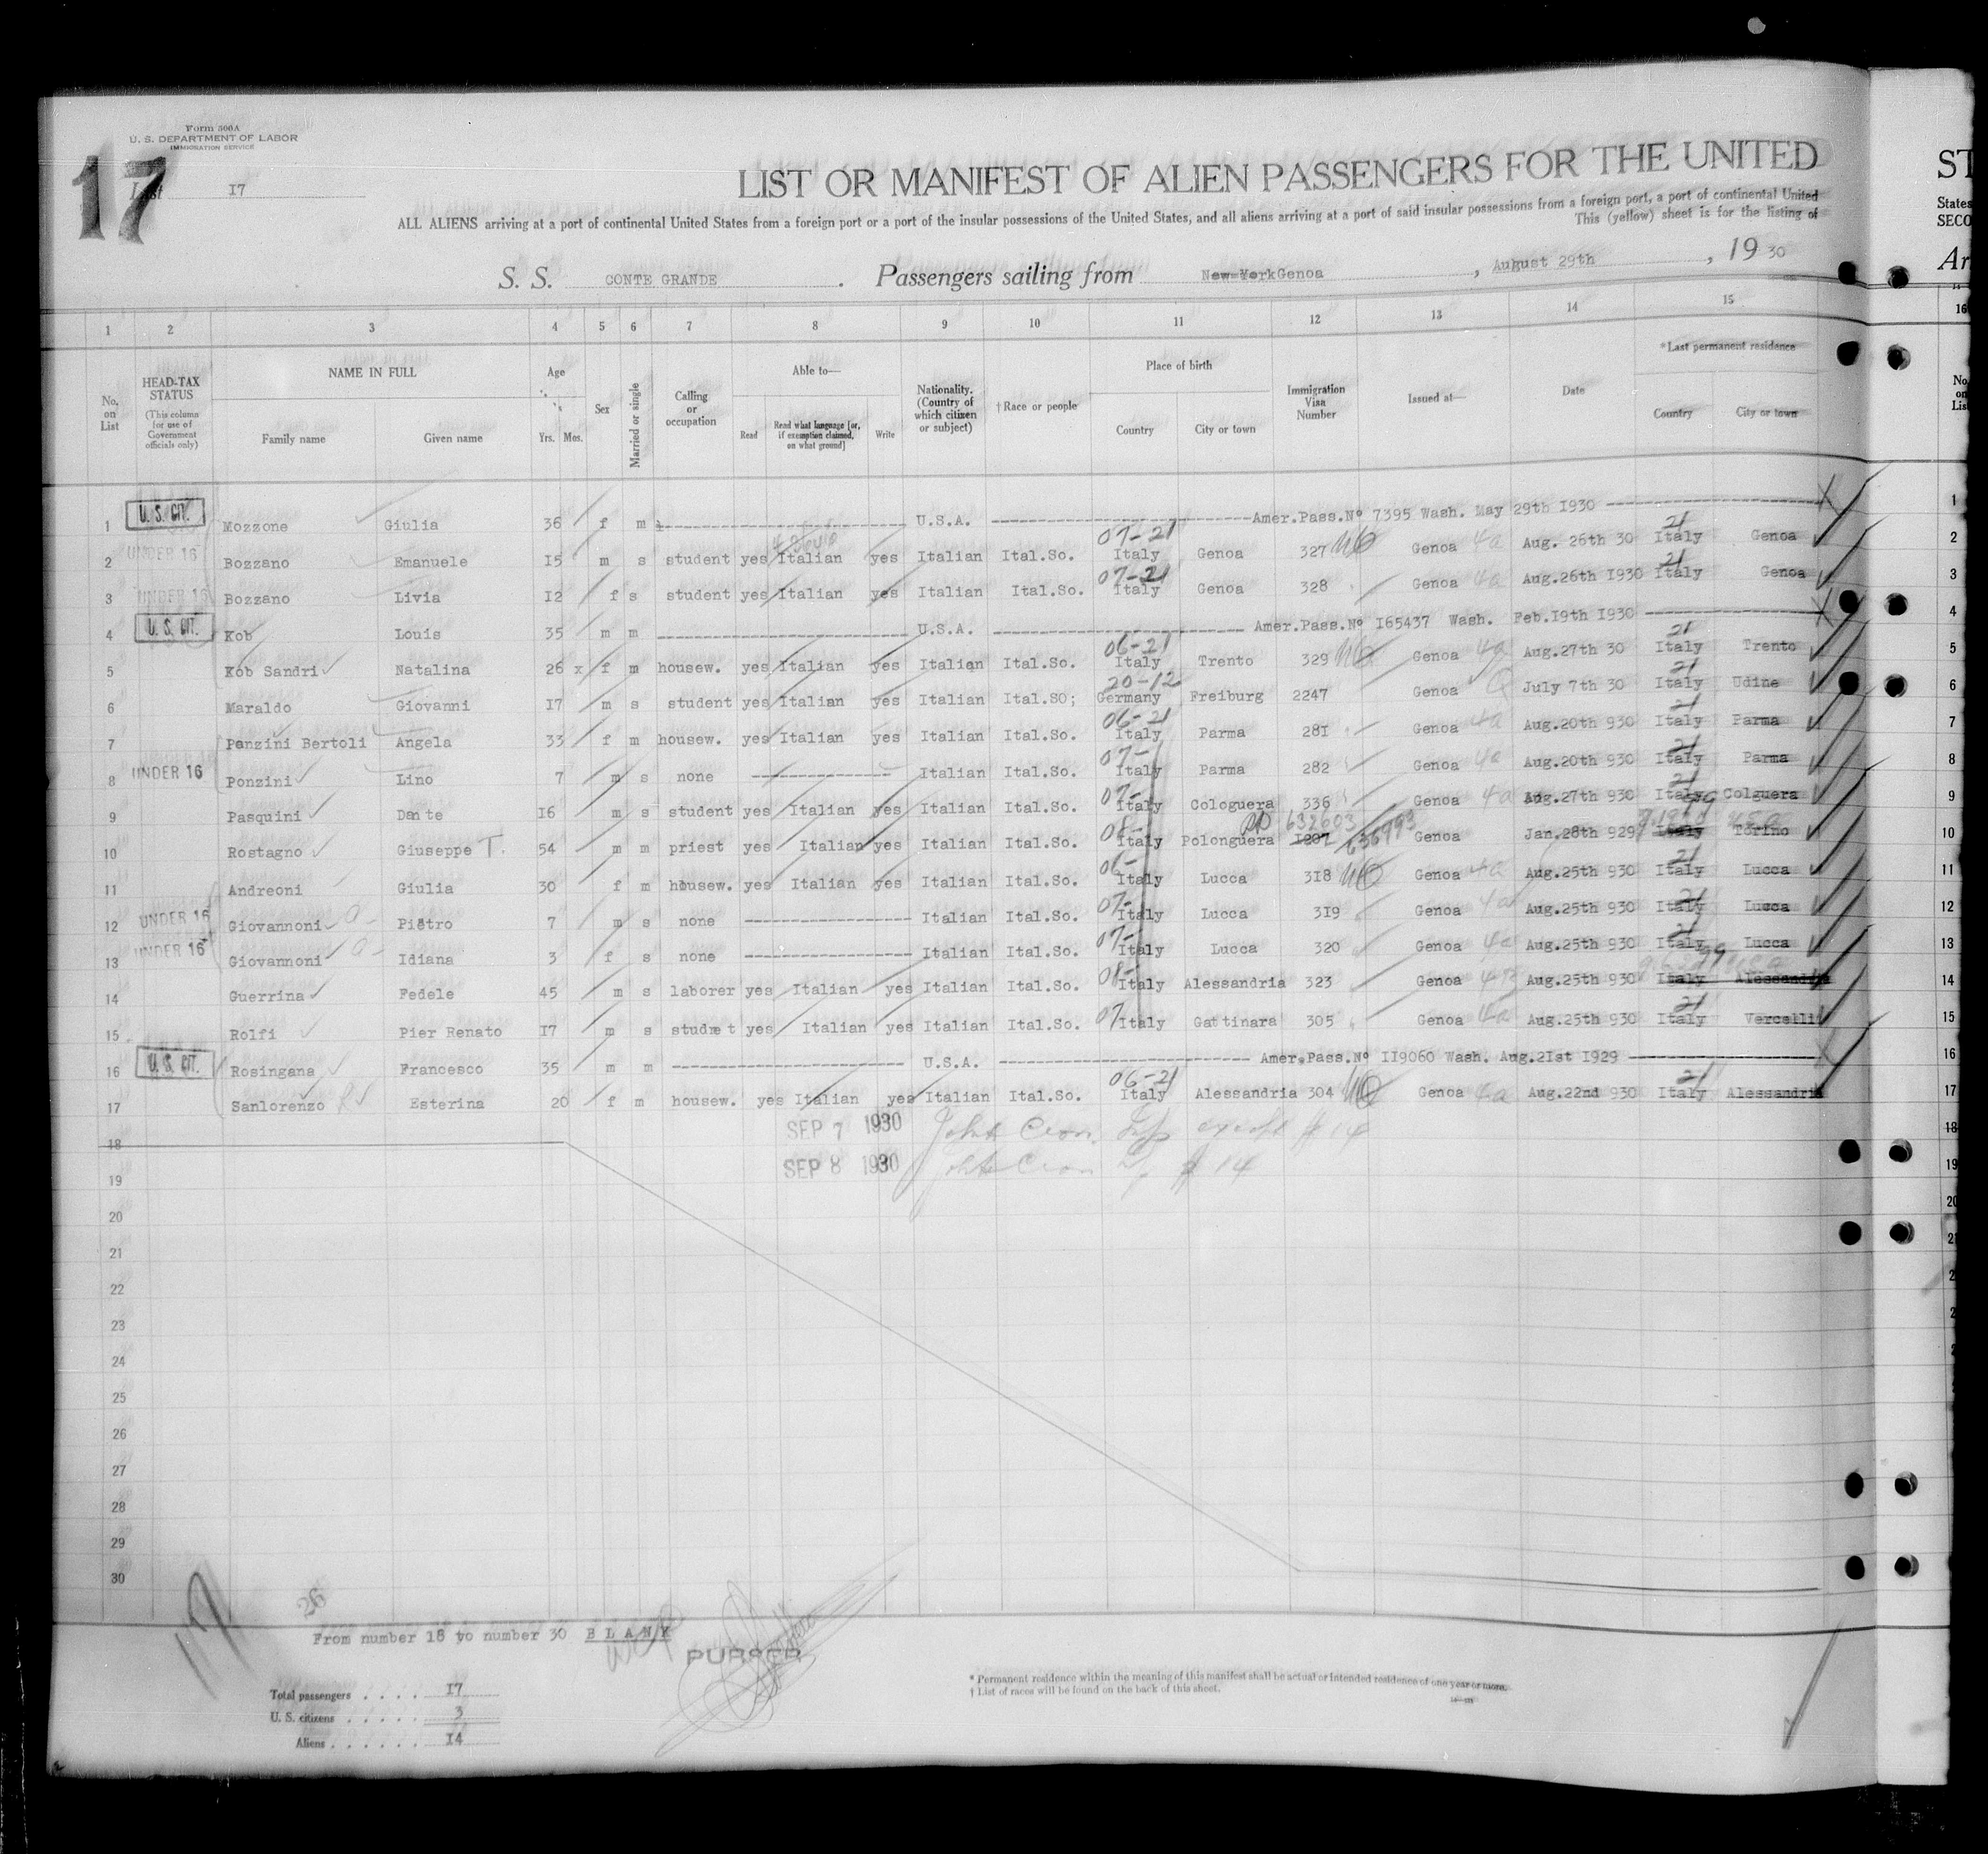 Form 500A
U. S. DEPARTMENT OF LABOR
IMMIGRATION SERVICE
17
List 17
LIST OR MANIFEST OF ALIEN PASSENGERS FOR THE UNITED
ST
ALL ALIENS arriving at a port of continental United States from a foreign port or a port of the insular possessions of the United States, and all aliens arriving at a port of said insular possessions from a foreign port, a port of continental United
States
This (yellow) sheet is for the listing of
SECO
S. S. CONTE GRANDE. Passengers sailing from New York Genoa, August 29th, 19 30
Ar
1 2 3 4 5 6 7 8 9 10 11 12 13 14 15 16
No. on List
HEAD-TAX STATUS
(This column for use of Government officials only)
NAME IN FULL
Family name Given name
Age
Yrs. Mos.
Sex
Married or single
Calling or occupation
Able to—
Read
Read what language [or, if exemption claimed, on what ground]
Write
Nationality. (Country of which citizen or subject)
†Race or people
Place of birth
Country City or town
Immigration Visa Number
Issued at—
Date
*Last permanent residence
Country City or town
No. on List
1 U. S. CIT. Mozzone Giulia 36 f m U.S.A. Amer.Pass.Nº 7395 Wash. May 29th I930 1
2 UNDER 16 Bozzano Emanuele I5 m s student yes Italian yes Italian Ital.So. 07-21 Italy Genoa 327 Genoa 4a Aug. 26th 30 21 Italy Genoa 2
3 UNDER 16 Bozzano Livia I2 f s student yes Italian yes Italian Ital.So. 07-21 Italy Genoa 328 Genoa 4a Aug.26th I930 21 Italy Genoa 3
4 U. S. CIT. Kob Louis 35 m m U.S.A. Amer.Pass.Nº I65437 Wash. Feb.I9th I930 4
5 Kob Sandri Natalina 26 x f m housew. yes Italian yes Italian Ital.So. 06-21 Italy Trento 329 Genoa 4a Aug.27th 30 21 Italy Trento 5
6 Maraldo Giovanni I7 m s student yes Italian yes Italian Ital.SO; 20-12 Germany Freiburg 2247 Genoa Q July 7th 30 21 Italy Udine 6
7 Ponzini Bertoli Angela 33 f m housew. yes Italian yes Italian Ital.So. 06-21 Italy Parma 28I Genoa 4a Aug.20th 930 21 Italy Parma 7
8 UNDER 16 Ponzini Lino 7 m s none Italian Ital.So. 07- Italy Parma 282 Genoa 4a Aug.20th 930 21 Italy Parma 8
9 Pasquini Dante I6 m s student yes Italian yes Italian Ital.So. 07- Italy Cologuera 336 Genoa 4a Aug.27th 930 21 Italy Colguera 9
10 Rostagno Giuseppe T. 54 m m priest yes Italian yes Italian Ital.So. 08- Italy Polonguera I207 632603 636993 Genoa Jan.28th 929 99 Italy Torino 10
11 Andreoni Giulia 30 f m housew. yes Italian yes Italian Ital.So. 06- Italy Lucca 3I8 Genoa 4a Aug.25th 930 21 Italy Lucca 11
12 UNDER 16 Giovannoni Pietro 7 m s none Italian Ital.So. 07- Italy Lucca 3I9 Genoa 4a Aug.25th 930 21 Italy Lucca 12
13 UNDER 16 Giovannoni Idiana 3 f s none Italian Ital.So. 07- Italy Lucca 320 Genoa 4a Aug.25th 930 21 Italy Lucca 13
14 Guerrina Fedele 45 m s laborer yes Italian yes Italian Ital.So. 08- Italy Alessandria 323 Genoa Aug.25th 930 99 Italy Alessandria 14
15 Rolfi Pier Renato I7 m s studnet yes Italian yes Italian Ital.So. 07 Italy Gattinara 305 Genoa 4a Aug.25th 930 21 Italy Vercelli 15
16 U. S. CIT. Rosingana Francesco 35 m m U.S.A. Amer.Pass.Nº II9060 Wash. Aug.2Ist I929 16
17 Sanlorenzo Esterina 20 f m housew. yes Italian yes Italian Ital.So. 06-21 Italy Alessandria 304 Genoa 4a Aug.22nd 930 21 Italy Alessandria 17
SEP 7 1930 except # 14
18 18
SEP 8 1930 # 14
19 19
20 20
21 21
22
23
24
25
26
27
28
29
30
17
26
From number I8 to number 30 B L A N K
PURSER
Total passengers . . . . I7
U. S. citizens . . . . . 3
Aliens . . . . . . I4
* Permanent residence within the meaning of this manifest shall be actual or intended residence of one year or more.
† List of races will be found on the back of this sheet.